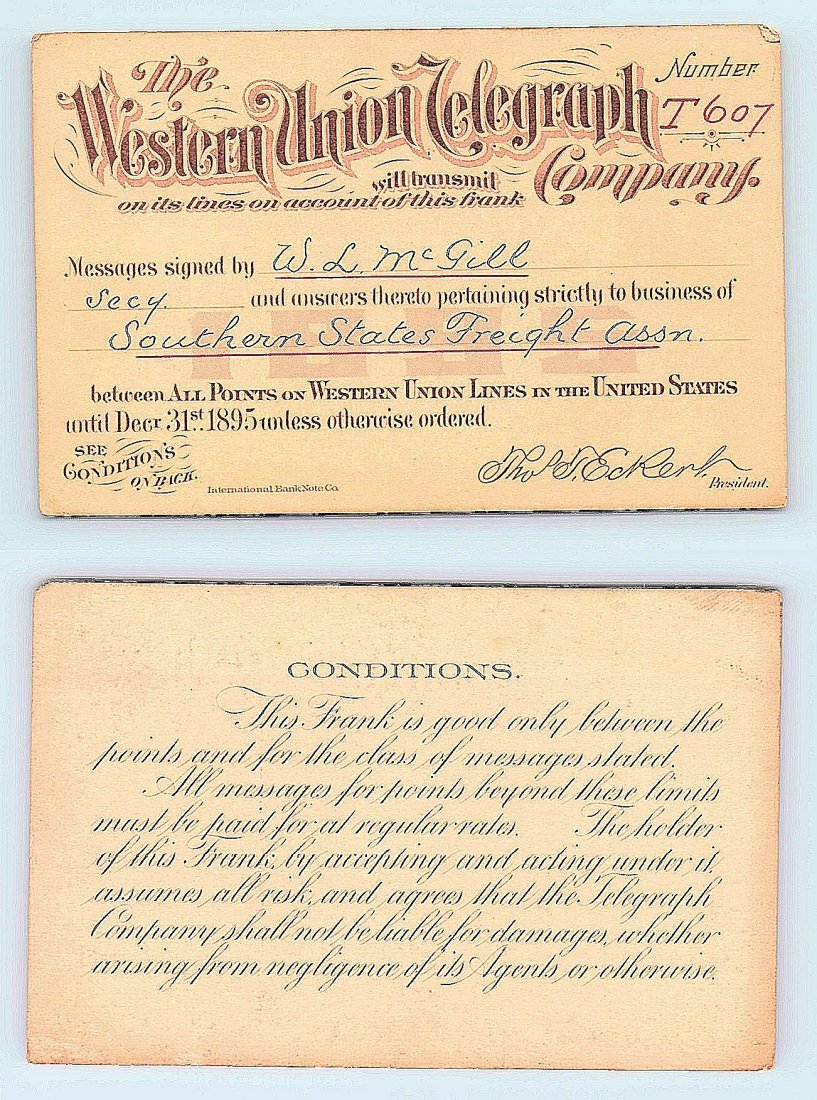 The
Number
Western Union Telegraph
T 607
Company.
will transmit
on its lines on account of this frank
Messages signed by W. L. McGill
Secy. and answers thereto pertaining strictly to business of
Southern States Freight Assn.
1895
between ALL POINTS ON WESTERN UNION LINES IN THE UNITED STATES
until Decr 31st 1895 unless otherwise ordered.
SEE
CONDITIONS
ON BACK.
International Bank Note Co
Thos. T. Eckert
President.
CONDITIONS.
This Frank is good only between the
points and for the class of messages stated.
All messages for points beyond these limits
must be paid for at regular rates. The holder
of this Frank, by accepting and acting under it,
assumes all risk, and agrees that the Telegraph
Company shall not be liable for damages, whether
arising from negligence of its Agents or otherwise.